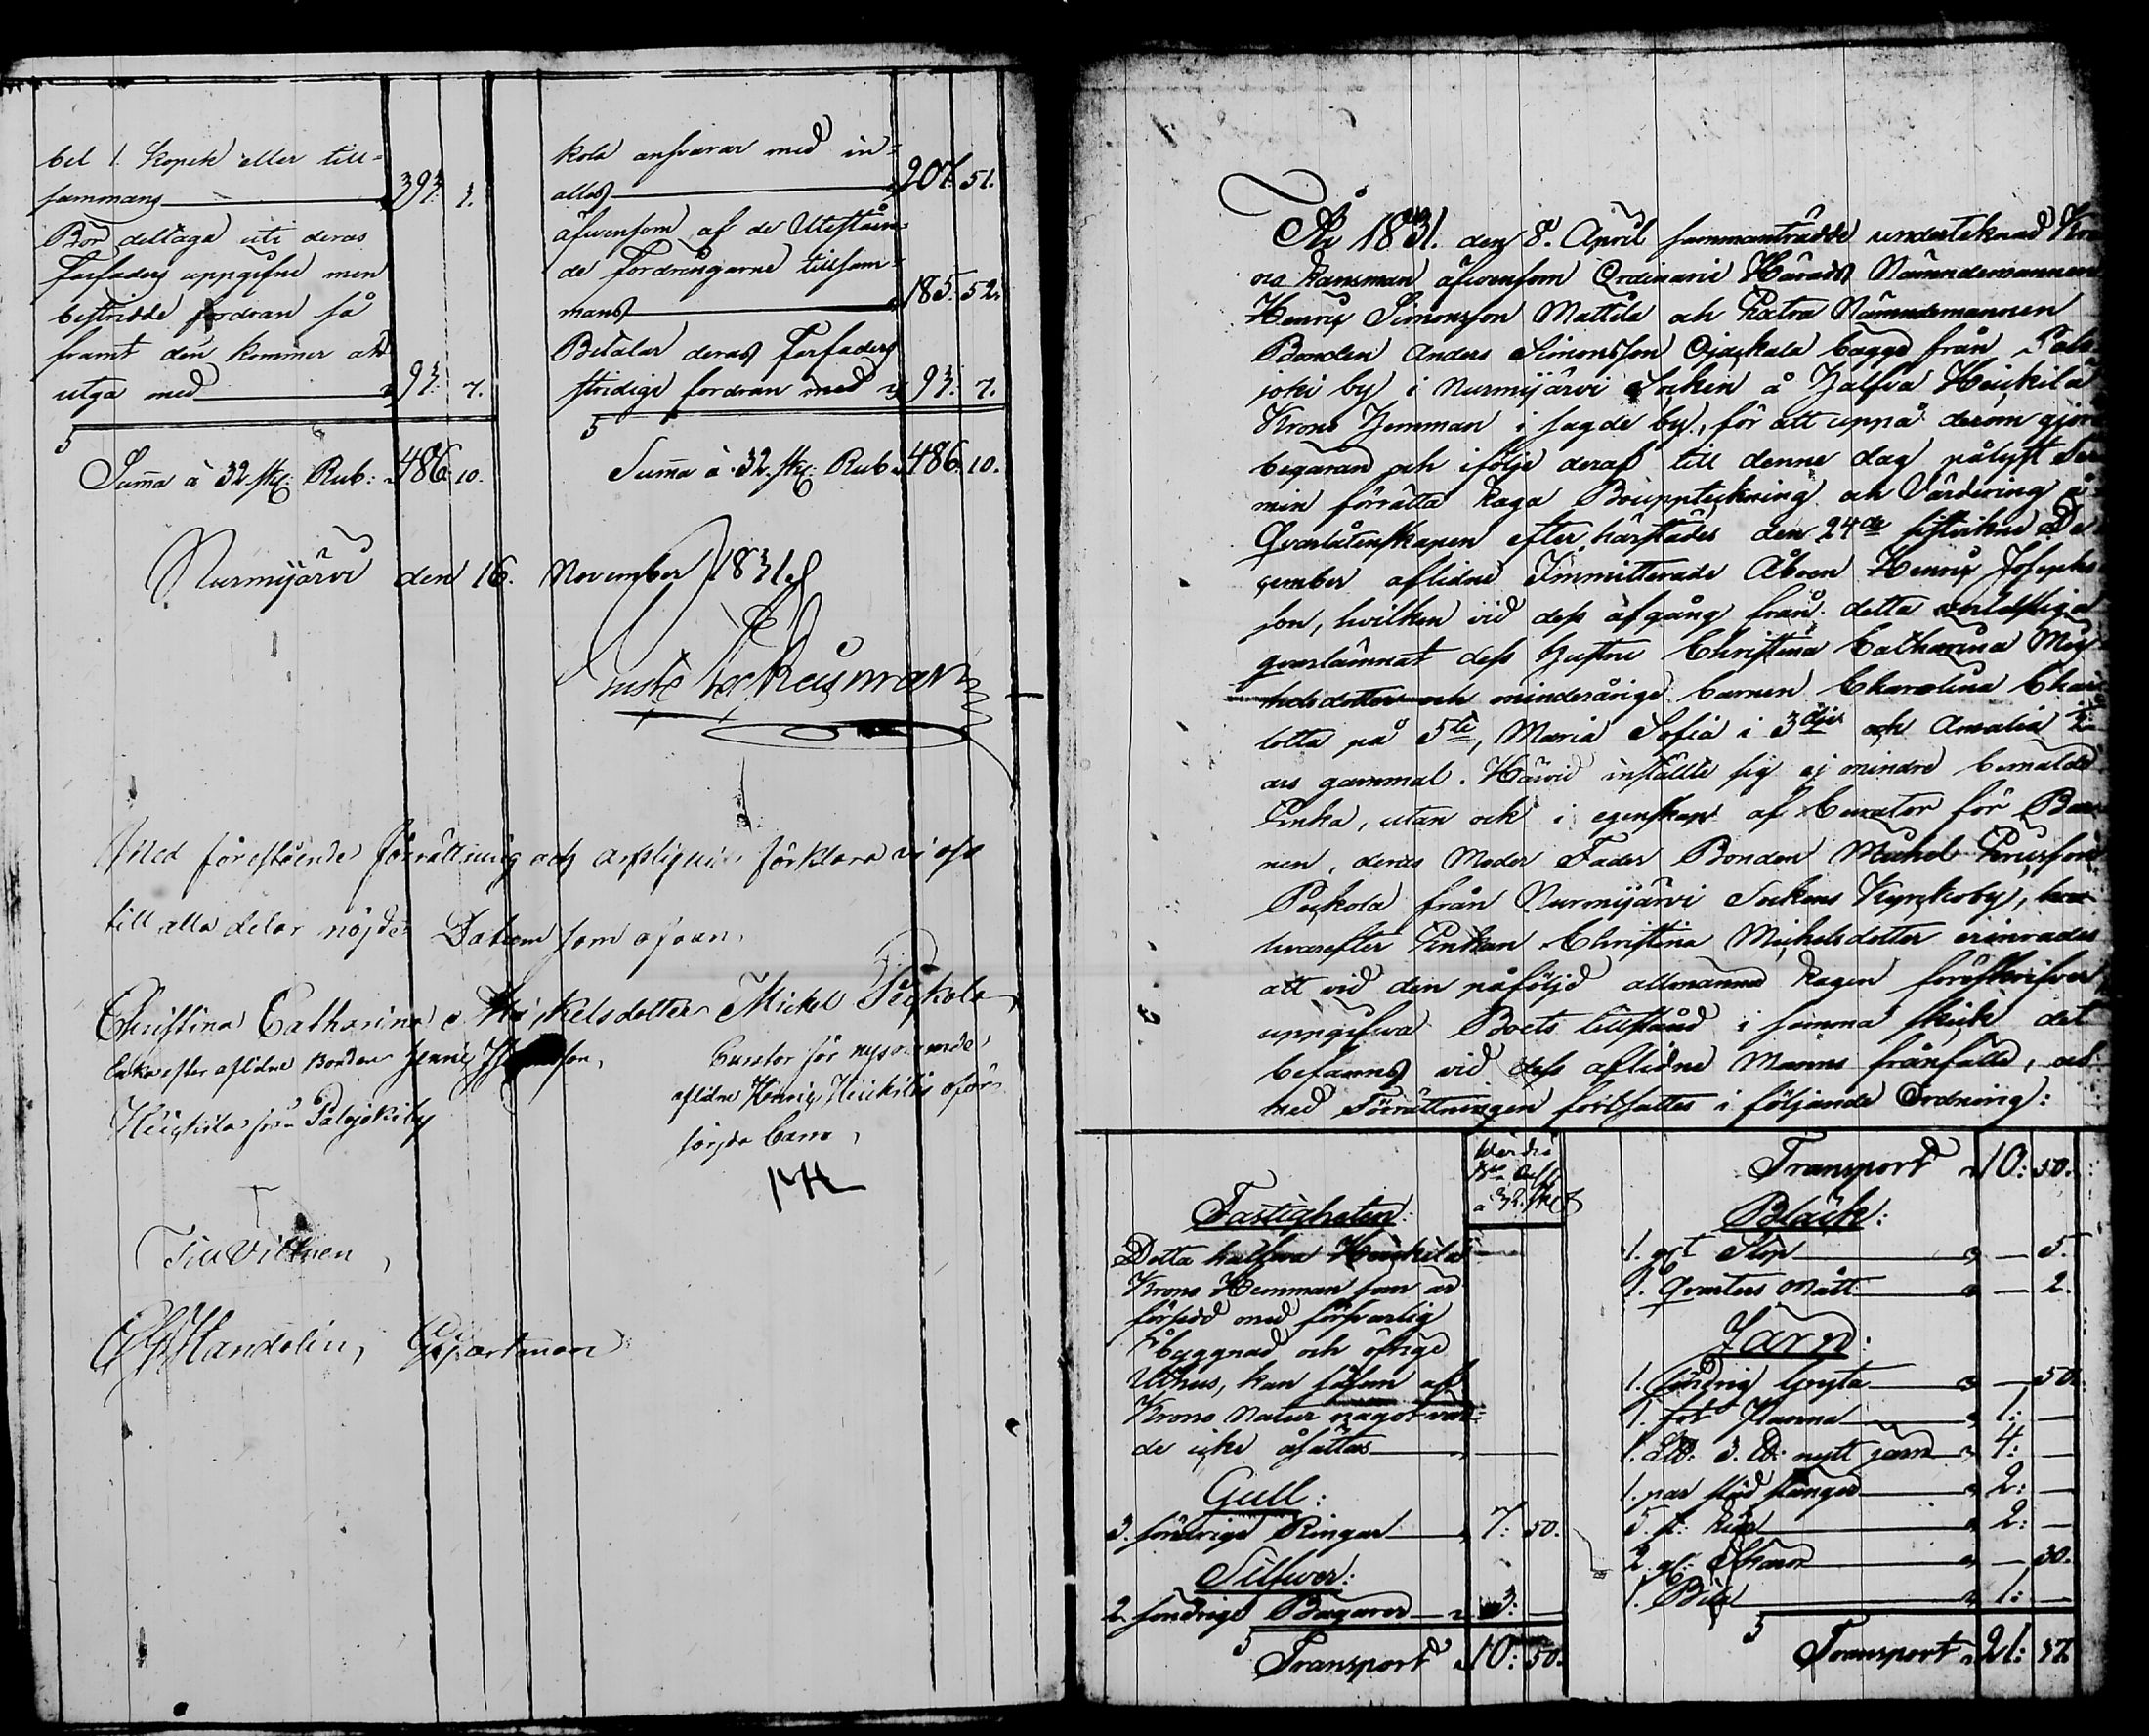 bel 1. kopek eller till-
sammans 393. 3.
Bör deltaga uti deras
Farfaders uppgifne men
bestridde fordran så
framt den kommer att
utgå med 93. 7.
Summa à 32. sk: Rub: 486. 10.
kola ansvarar med in-
alles 207. 51.
äfwensom af de Uteståen-
de fordringarne tillsam-
mans 185. 52.
Betalar deras Farfaders
stridige fordran med 93. 7.
Summa à 32. sk: Rub 486. 10.
Nurmijärvi den 16. November 1831.
Med förestående förrättning och arfsliqvid förklara vi oss
till alla delar nöjde Datum som ofvan.
Christina Catharina Mickelsdotter
Enka efter aflidne Bonden Henric
Heickilä från Palojoki by
Mickel Peckola
Curator för
aflidne Henric Heickiläs oför-
sörjda barn,
Till Vittnen,
Mandelin, Gartman
År 1831. den 8. April sammanträdde undertecknad Kro-
no Länsman äfwensom Ordinarie Härads Nämndemannen
Henric Simonsson Mattila och Extra Nämndemannen
Bonden Anders Simonsson Ojackala bägge från Palo-
joki by i Nurmijärvi Socken å halfva Heickilä
Krono Hemman i sagde by, för att uppå derom gjord
begäran och ifölje deraf till denne dag pålyst Ter-
min förrätta Laga Bouppteckning och Värdering å
Qvarlåtenskapen efter härstädes den 24de sistvikne De-
cember aflidne Immitterade Åboen Henric Josephs-
son, hvilken vid dess afgång från detta verldsliga
qvarlämnat dess Hustru Christina Catharina Mic-
kelsdotter och minderårige barnen Charolina Char-
lotta på 5te, Maria Sofia i 3dje och Amalia
års gammal. Härvid inställte sig ej mindre bemälde
Enka, utan ock i egenskap af Curator för Bar-
nen, deras Moder Fader Bonden Michel Ericsson
Peckola från Nurmijärvi Sockens Kyrkoby,
hvarefter Enkan Christina Mickelsdotter erinrades
att vid den påföljd allmänna Lagen föreskrifver
uppgifva Boets tillstånd i samma skick det
befanns vid dess aflidne Manns frånfälle, och
med Förrättningen fortsattes i följande Ordning:
à 32. sk
Fastigheten:
Detta halfwa Heickilä
Krono Hemman som är
försedd med försvarlig
Åbyggnad och öfrige
Uthus, kan såsom af
Krono Natur något vär-
de icke åsättas
Gull:
3. söndrige Ringar 7: 50.
Silfwer:
2 söndrige Bägarer 3: —
Transport 10: 50.
Transport 10: 50.
Bläck:
1. Stop — 5.
1. qvarters Mått — 2.
Järn:
1. söndrig Gryta — 50.
1. Panna 1: —
1. LB: 3. lb: nytt järn 4: —
1. par stänger 2: —
5. st: Liar 2: —
2. gl: Skäror — 30.
1. Bila 1: —
Transport 21: 37.